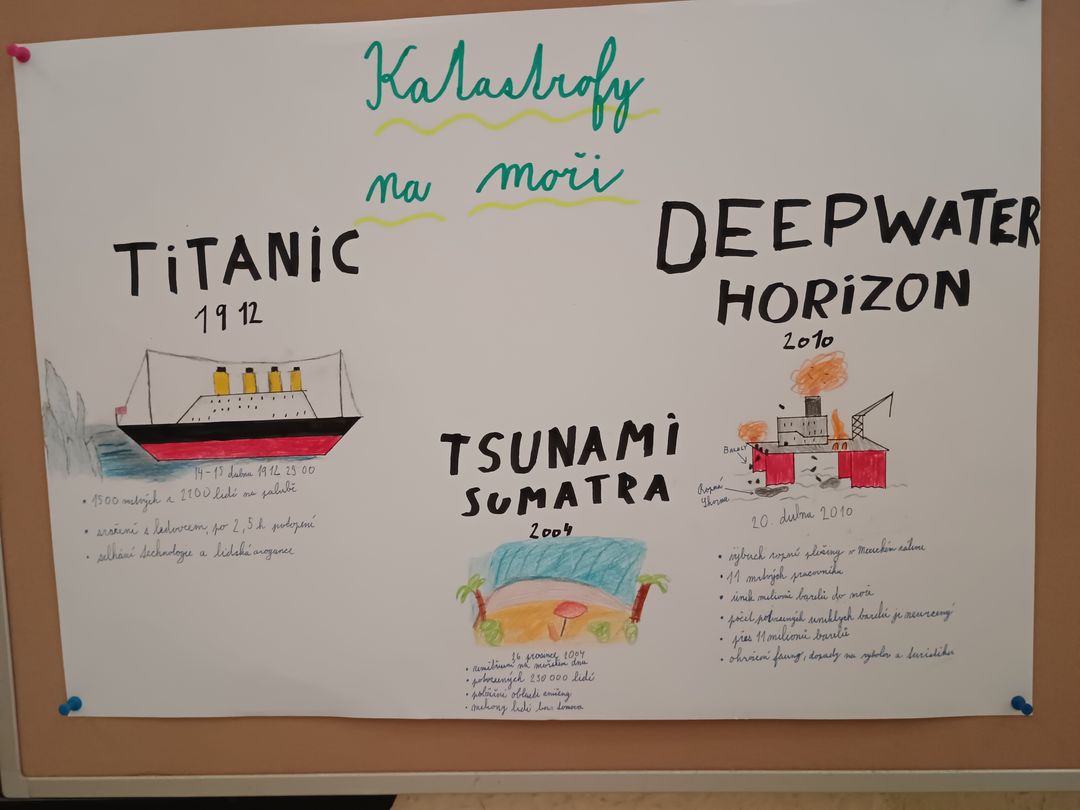 Katastrofy
na moři
TiTANiC
1912
14-15 dubna 1912 23 00
• 1500 mrtvých z 2200 lidí na palubě
• sražení s ledovcem, po 2,5 h potopení
• selhání technologie a lidská arogance
TSUNAMi
SUMATRA
2004
26 prosince 2004
• zemětřesení na mořském dna
• pohřbených 230 000 lidí
• pobřežní oblasti zničeny
• miliony lidí bez domova
DEEPWATER
HORiZON
2010
Barely
Ropná
skvrna
20. dubna 2010
• výbuch ropní plošiny v Mexickém zálivu
• 11 mrtvých pracovníků
• únik milionů barelů do moře
• počet potvrzených uniklých barelů je neurčený
• přes 11 milionů barelů
• ohrožení fauny, dopady na rybolov a turistiku